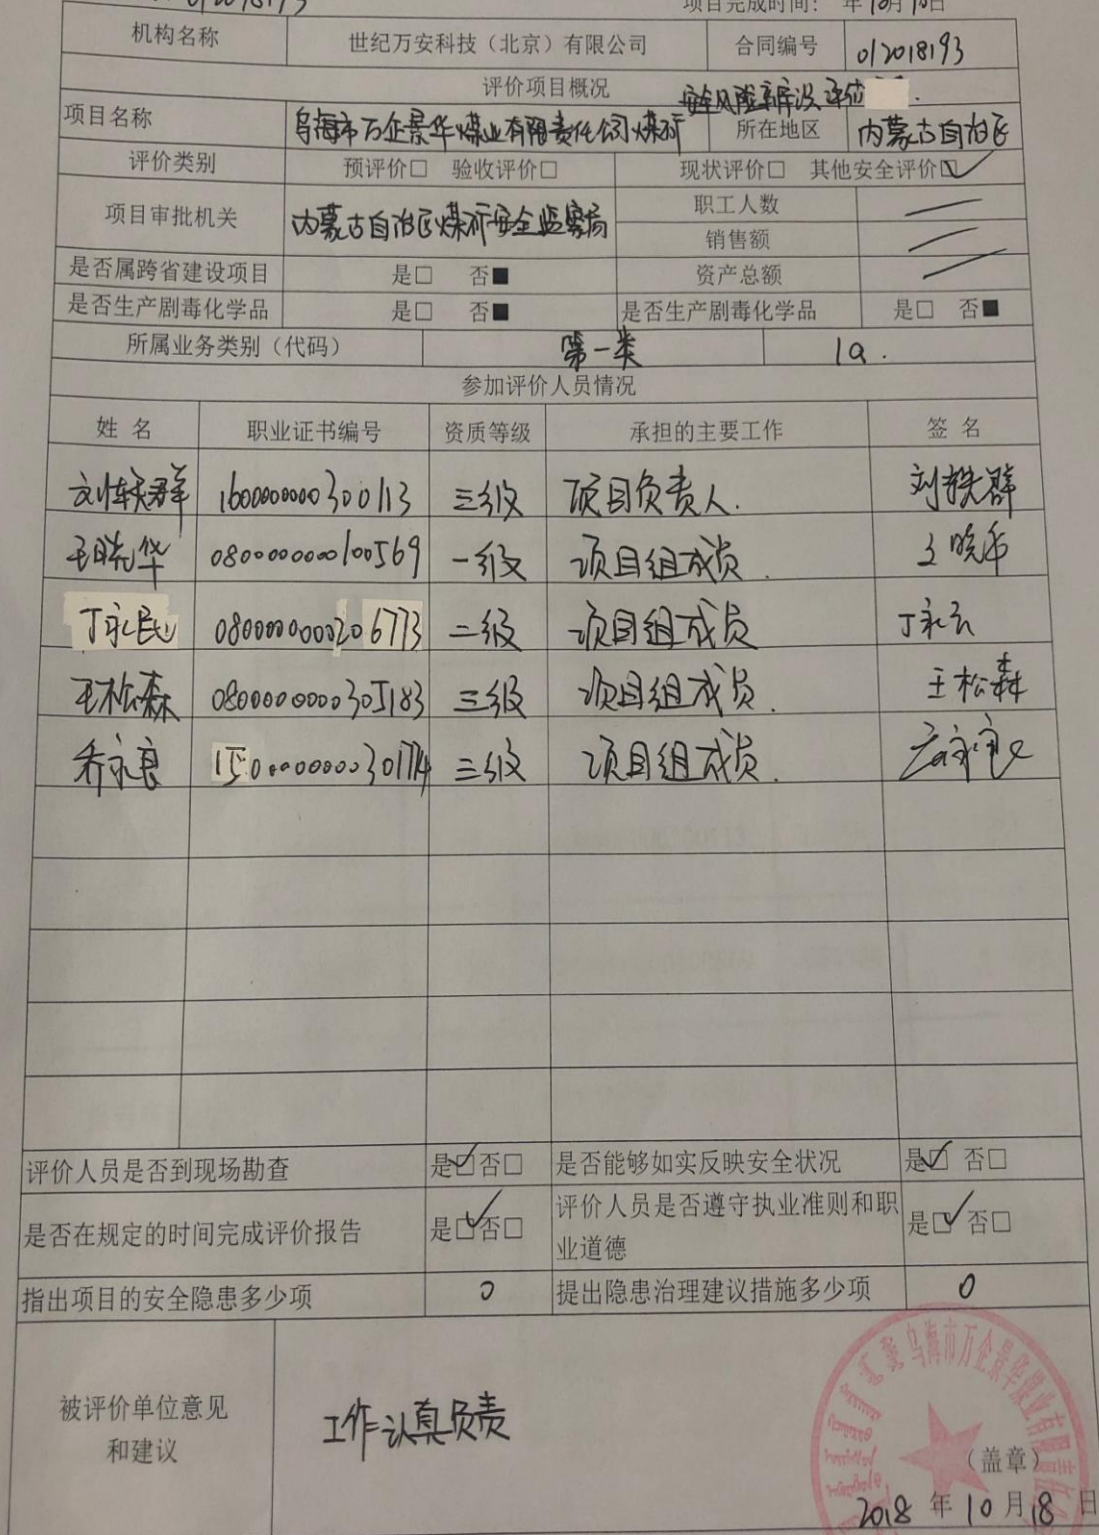 012018193 项目完成时间： 年10月18日
机构名称 世纪万安科技（北京）有限公司 合同编号 012018193
评价项目概况
项目名称 乌海市万企景华煤业有限责任公司煤矿安全风险辨识评估 所在地区 内蒙古自治区
评价类别 预评价□ 验收评价□ 现状评价□ 其他安全评价☑
项目审批机关 内蒙古自治区煤矿安全监察局 职工人数
销售额
是否属跨省建设项目 是□ 否■ 资产总额
是否生产剧毒化学品 是□ 否■ 是否生产剧毒化学品 是□ 否■
所属业务类别（代码） 第一类 1a.
参加评价人员情况
姓 名 职业证书编号 资质等级 承担的主要工作 签 名
刘轶群 1600000000300113 三级 项目负责人. 刘轶群
王晓华 0800000000100569 一级 项目组成员. 王晓华
丁永民 0800000000206773 二级 项目组成员 丁永民
王松森 0800000000305183 三级 项目组成员. 王松森
乔永良 1500000000301774 三级 项目组成员. 乔永良
评价人员是否到现场勘查 是☑否□ 是否能够如实反映安全状况 是☑ 否□
是否在规定的时间完成评价报告 是☑否□ 评价人员是否遵守执业准则和职
业道德 是☑ 否□
指出项目的安全隐患多少项 0 提出隐患治理建议措施多少项 0
被评价单位意见
和建议
工作认真负责
乌海市万企景华煤业有限责任公
（盖章）
2018 年 10 月 18 日